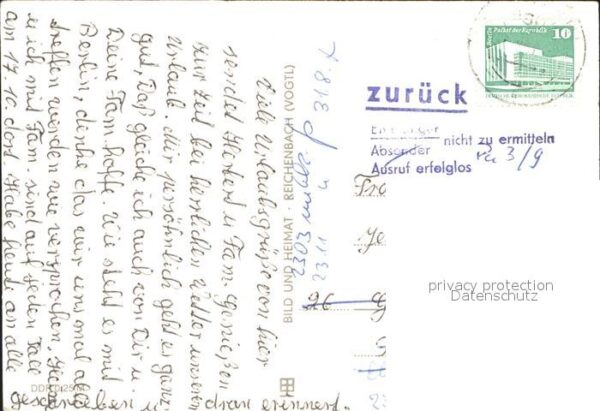 Viele Urlaubsgrüße von hier
sendet Herbert u. Fam. Genießen
zur Zeit bei herrlichen Wetter unseren
Urlaub. Mir persönlich geht es ganz
gut, Daß gleiche ich auch von Dir u.
Deine Fam. hoffe. Wie steht es mit
Berlin, denke das wir uns mal alle
treffen werden wie versprochen,
u. ich mit Fam. sind auf jeden Fall
am 17.10. dort. Habe heut an alle
geschrieben u. dran erinnert.
DDR
BILD UND HEIMAT · REICHENBACH (VOGTL)
2303
23 11
318
Berlin, Palast der Republik
10
zurück
Empfänger
Absender
nicht zu ermitteln
Ausruf erfolglos
3/9
26
privacy protection
Datenschutz